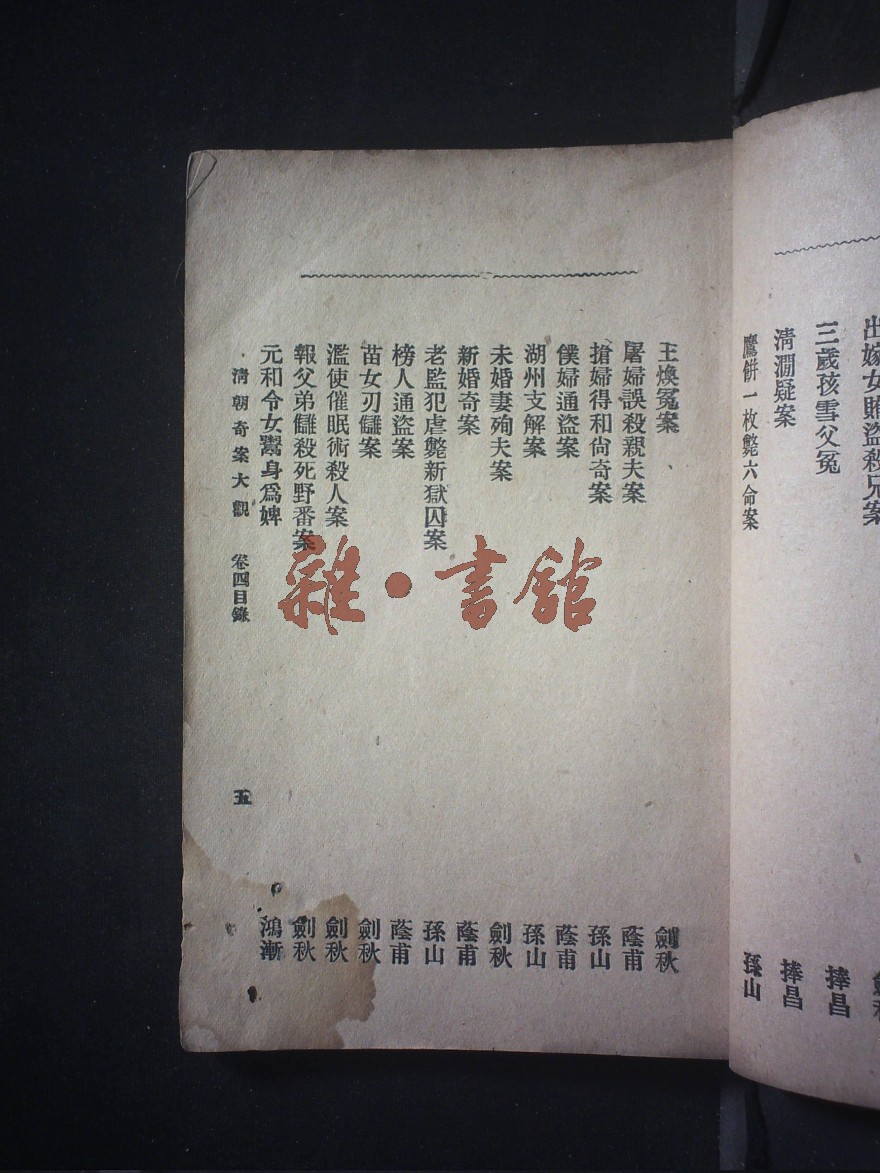 出嫁女賄盜殺兄案 劍秋
三歲孩雪父冤 捧昌
清澗疑案 捧昌
鷹餅一枚斃六命案 孫山
王煥冤案 劍秋
屠婦誤殺親夫案 蔭甫
搶婦得和尙奇案 孫山
僕婦通盜案 蔭甫
湖州支解案 孫山
未婚妻殉夫案 劍秋
新婚奇案 蔭甫
老監犯虐斃新獄囚案 孫山
榜人通盜案 蔭甫
苗女刃讎案 劍秋
濫使催眠術殺人案 劍秋
報父弟讎殺死野番案 劍秋
元和令女鬻身爲婢 鴻漸
清朝奇案大觀 卷四目錄 五
雜·書館